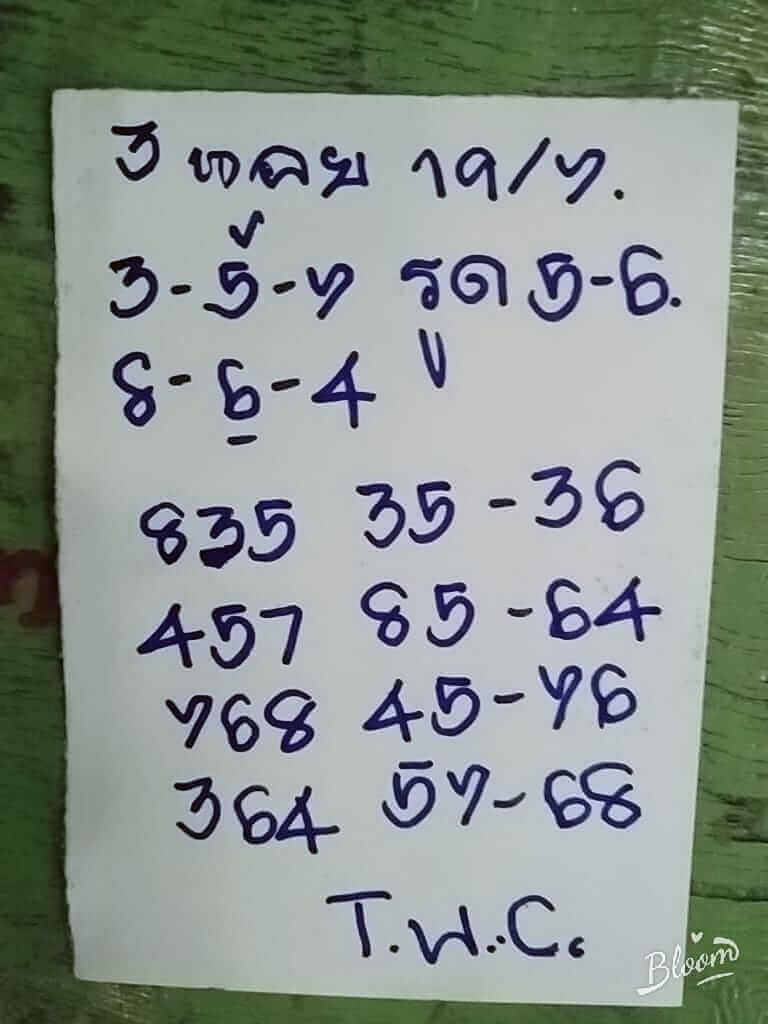 3 หลาย 19/7.
3-5-7 รูด 5-6.
8-6-4
835 35-36
457 85-64
768 45-76
364 57-68
T.W.C.
Bloom